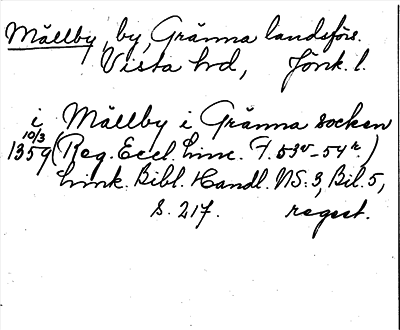 Mällby, by, Gränna landsförs.
Vista hd, Jönk. l.
i Mällby i Gränna socken
10/3
1359 (Reg. Eccl. Linc. F. 53v-54r.)
Link. Bibl. Handl. NS: 3, Bil. 5,
S. 217. regest.